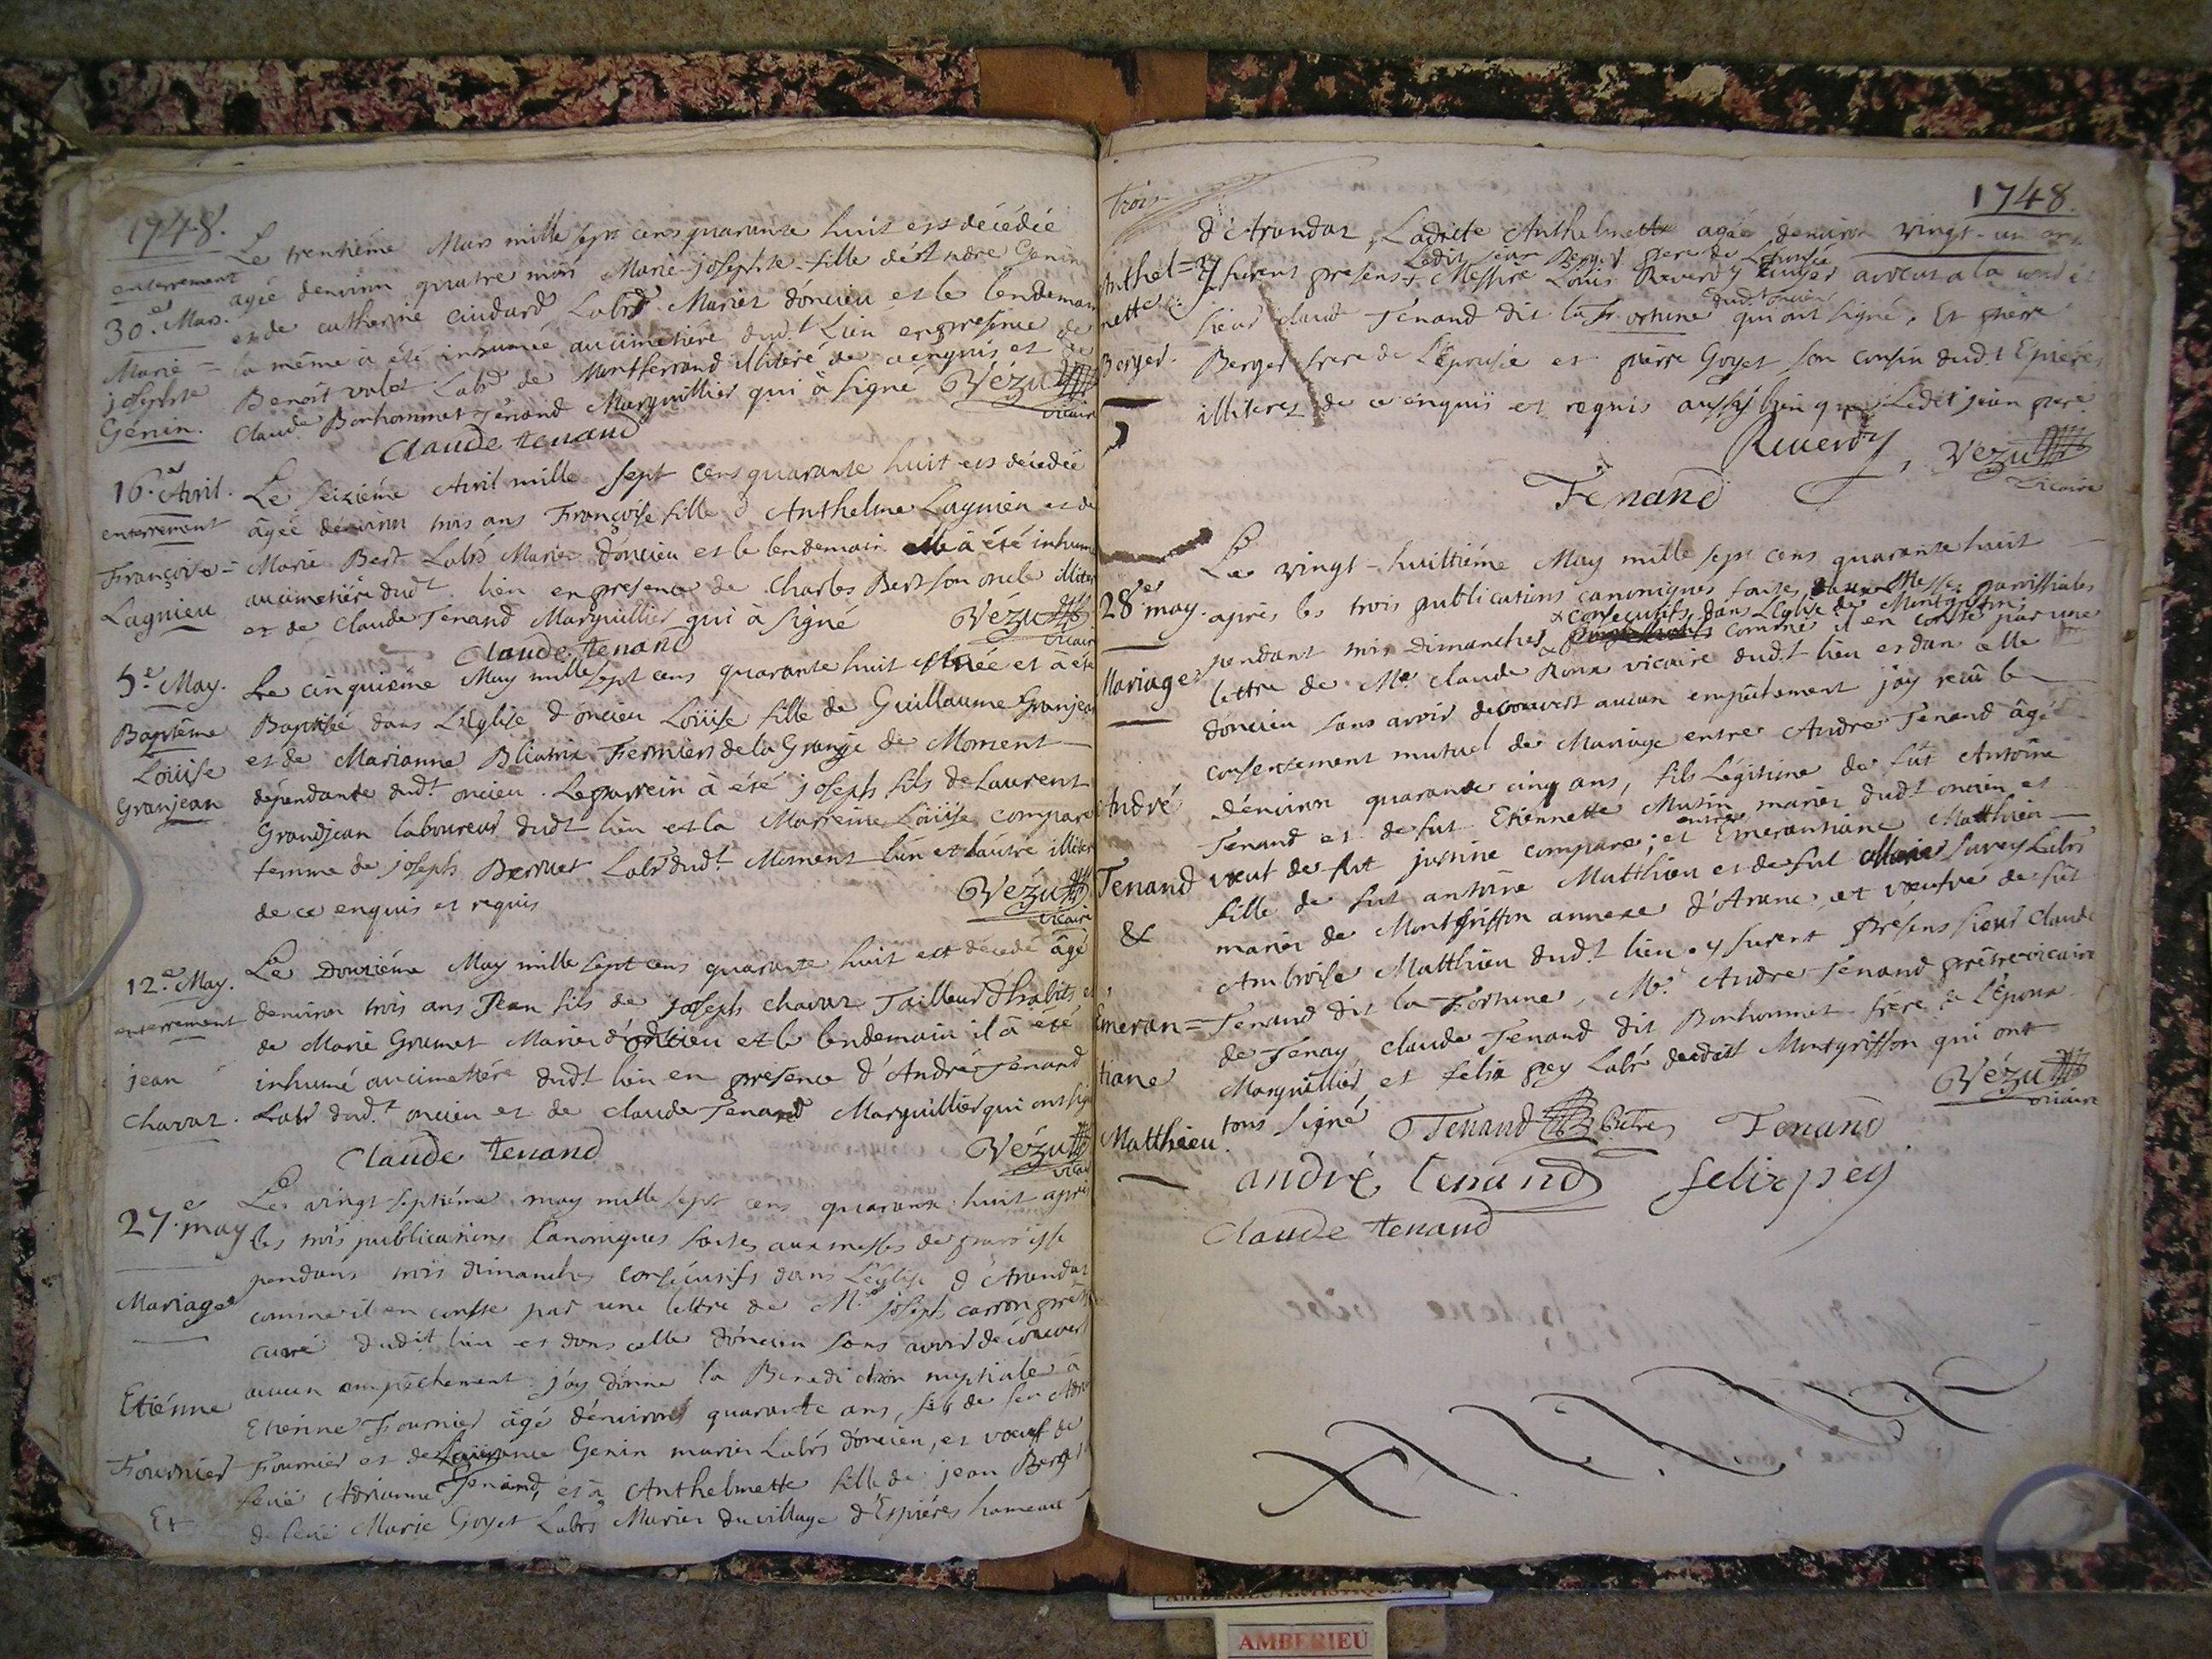 1748.
Le trentiéme Mars mille sept cens quarante huit est décédée
enterrement
agée denviron quatre mois Marie-josephte fille d'Andre Genin
30.e Mars.
et de catherine cudard Labrs Mariez d'oncieu et le lendemain
Marie =
la même à été inhumée au cimetiére dudt. Lieu en presence de
josephte
Benoit valet Labr de Montferrand illiteré de ce enquis et de
Génin.
Claude Bonhommet Tenand Marguillier qui à signé Vézu
vicaire
Claude tenand
16.e Avril.
Le seiziéme Avril mille sept cens quarante huit est décedée
enterrement
âgée d'environ trois ans Françoise fille d'Anthelme Lagnieu et de
Françoise =
Marie Bert Labrs Mariez d'oncieu et le lendemain elle à été inhumée
Lagnieu
au cimetiére dudt. lieu en presence de Charles Bert son oncle illiteré
et de Claude Tenand Marguillier qui à signé Vézu
vicaire
Claude tenand
5.e May.
Le cinquiéme May mille sept cens quarante huit est née et à été
Baptême
Baptisée dans L'église d'oncieu Loüise fille de Guillaume Granjean
Loüise
et de Marianne Fermiers de la Grange de Morment
Granjean
dépendante dudt. oncieu. Le parrein à été joseph fils de Laurent
Grandjean laboureur dudt lieu et la Marreine Loüise compare
femme de joseph Berruet Labr dudt. Morment l'un et l'autre illiterez
de ce enquis et requis
Vézu
vicaire
12.e May.
Le Douziéme May mille sept cens quarante huit est décédé âgé
enterrement
denviron trois ans Jean fils de joseph chavaz Tailleur d'habits et
de Marie Grumet Mariez d'oncieu et le lendemain il à été
jean
inhumé au cimetiére dudt lieu en presence d'André Tenand
Chavaz.
Labr dudt. oncieu et de claude Tenand Marguillier qui ont signé
Claude tenand
Vézu
vicaire
27.e may
Le vingt-septiéme may mille sept cens quarante huit après
les trois publications Canoniques faites aux messes de parroisse
pendans trois dimanches consécutifs dans L'église d'Arandaz
Mariage
comme il en conste par une lettre de Mre joseph carron prêtre
curé dudit lieu et dans celle d'oncieu sans avoir découvert
aucun empêchement j'ay donné la Benediction nuptiale à
Etiénne
Etienne Fournier âgé d'environ quarante ans, fils de feu
Fournier
Fournier et de Laurence Genin mariez Labrs d'oncieu, et voeuf de
feüe Adrianne Tenand, et à Anthelmette fille de jean Berger
Et
de feüe Marie Goyet Labrs Mariez du village d'Espiéres hameau
trois
1748.
d'Arandaz, Ladicte Anthelmette agée denviron vingt-un ans
Ledit jean Berger pere de L'épousée
Anthel=
y furent presens + Messire Loüis Reverdy Ecuyer avocat a la cour et
nette
dudt oncieu
sieur claude Tenand dit la Fortune qui ont signé. Et pierre
Berger
Berger frere de L'épousée et pierre Goyet son cousin dudt Epiéres
illiterez de ce enquis et requis aussy bien que Ledit jean pere
Reverdy, Vézu
vicaire
Tenand
Le vingt-huittiéme May mille sept cens quarante huit
28e may.
après les trois publications canoniques faites aux Messes parroissiales
x consecutifs dans L'église de Montgriffon
pendant trois dimanches x comme il en conste par une
Mariage
lettre de Mre claude Roux vicaire dudt lieu et dans celle
d'oncieu sans avoir decouvert aucun empêchement j'ay reçû le
consentement mutuel de Mariage entre Andre Tenand âgé
André
d'environ quarante cinq ans, fils Légitime de fut Antoine
Tenand et de fut Etiennette Musin mariez dudt oncieu et
Tenand
voeuf de fut justine compare; et Emerantiane Matthieu
fille de fut antoine Matthieu et de fut Marie Savey Labrs
&
mariez de Montgriffon annexe d'Aranc, et voeufve de fut
Ambroise Matthieu dudt. lieu. y furent Présens sieur Claude
Emeran=
Tenand dit la Fortune, Mre. Andre Tenand prêtre vicaire
de Tenay claude Tenand dit Bonhommet frére de L'époux
tiane
Marguillier, et felix pey Labr dudit Montgriffon qui ont
Matthieu.
tous signé
Vézu
vicaire
Tenand Prêtre Tenand
andré tenand felix pey
Claude tenand
AMBERIEU